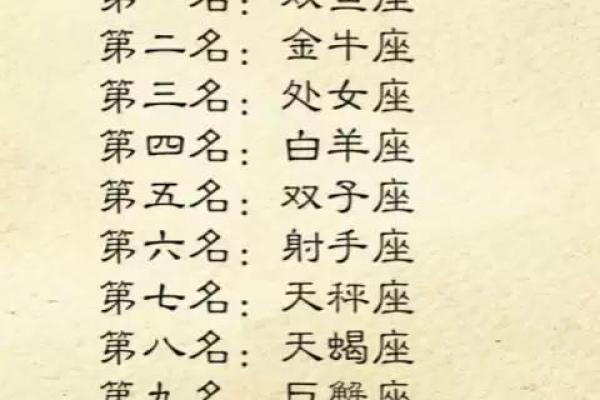 第一名：双鱼座
第二名：金牛座
第三名：处女座
第四名：白羊座
第五名：双子座
第六名：射手座
第七名：天秤座
第八名：天蝎座
第九名：巨蟹座